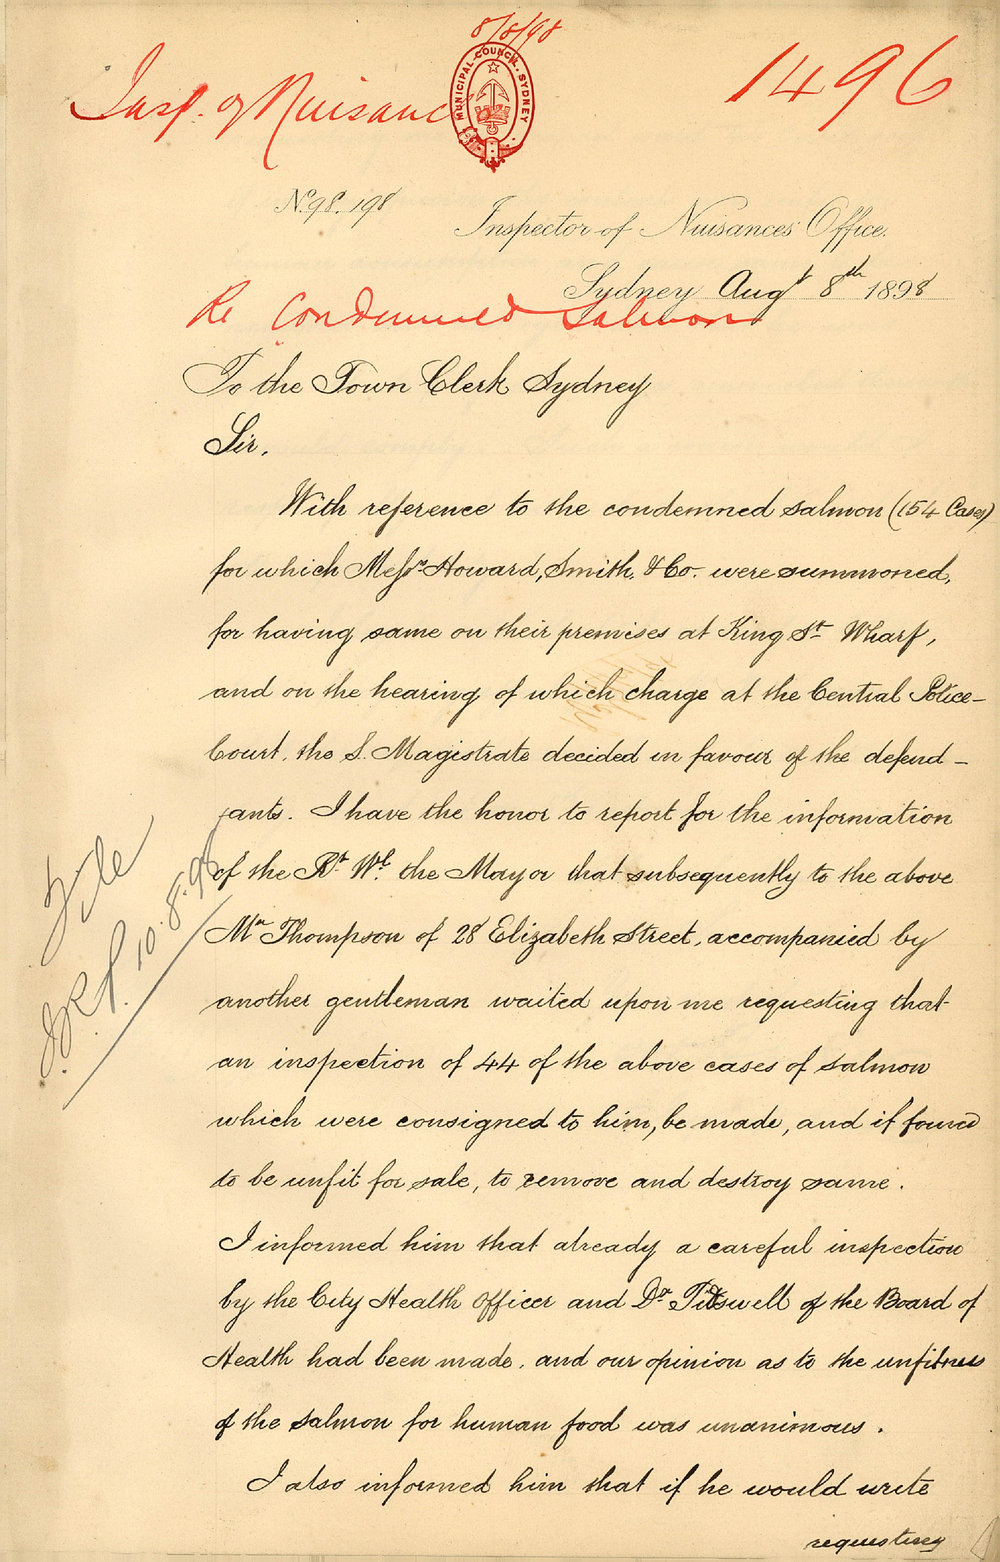 8/8/98
Insp. of Nuisance
MUNICIPAL COUNCIL. SYDNEY
1496
No. 98.198
Inspector of Nuisances' Office.
Sydney Augt 8th 1898
Re Condemned Salmon
To the Town Clerk Sydney
Sir,
With reference to the condemned salmon (154 Cases)
for which Messrs Howard, Smith, & Co. were summoned,
for having same on their premises at King St Wharf,
and on the hearing of which charge at the Central Police-
Court, the S. Magistrate decided in favour of the defend-
ants. I have the honor to report for the information
of the Rt. Wl. the Mayor that subsequently to the above
Mr Thompson of 28 Elizabeth Street, accompanied by
another gentleman waited upon me requesting that
an inspection of 44 of the above cases of salmon
which were consigned to him, be made, and if found
to be unfit for sale, to remove and destroy same.
I informed him that already a careful inspection
by the City Health Officer and Dr Tidswell of the Board of
Health had been made, and our opinion as to the unfitness
of the salmon for human food was unanimous.
I also informed him that if he would write
requesting
File
10.8.98